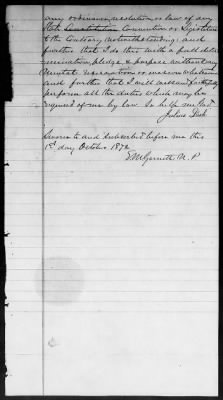 any ordinance, resolution or law of any
State Constitution Convention or Legislature
to the Contrary notwithstanding; and
further that I do this with a full deter-
mination, pledge & purpose without any
Mental reservation or evasion whatsoever
and further that I will well and faithfully
perform all the duties which may be
required of me by law. So help me God
Julius
Sworn to and Subscribed before me this
1st day October 1872
N. P.